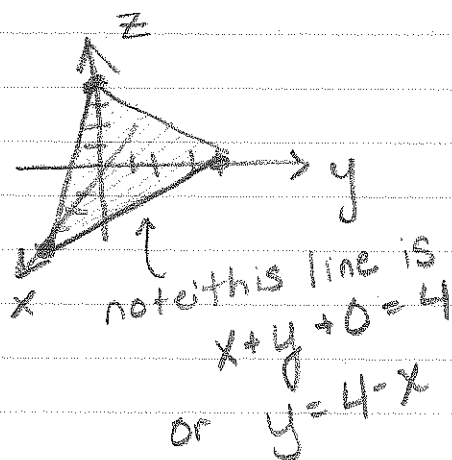 z
y
x
note: this line is
x + y + 0 = 4
or y = 4 - x